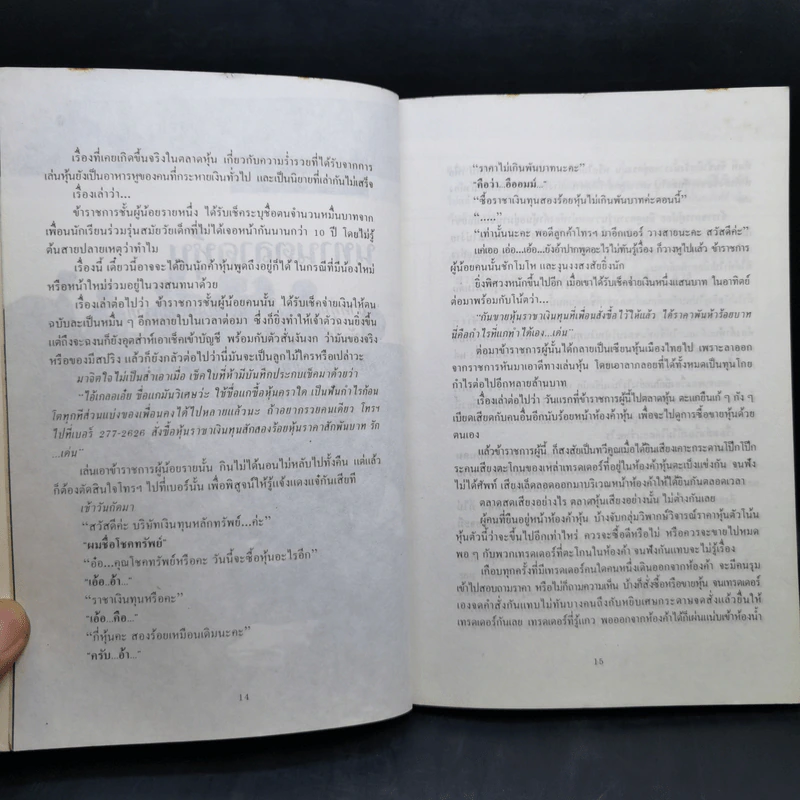 เรื่องที่เคยเกิดขึ้นจริงในตลาดหุ้น เกี่ยวกับความร่ำรวยที่ได้รับจากการ
เล่นหุ้นยังเป็นอาหารหูของคนที่กระหายเงินทั่วไป และเป็นนิยายที่เล่ากันไม่เสร็จ
เรื่องเล่าว่า...
ข้าราชการชั้นผู้น้อยรายหนึ่ง ได้รับเช็คระบุชื่อตนจำนวนหมื่นบาทจาก
เพื่อนนักเรียนร่วมรุ่นสมัยวัยเด็กที่ไม่ได้เจอหน้ากันนานกว่า 10 ปี โดยไม่รู้
ต้นสายปลายเหตุว่าทำไม
เรื่องนี้ เดี๋ยวนี้อาจจะได้ยินนักค้าหุ้นพูดถึงอยู่ก็ได้ ในกรณีที่มีน้องใหม่
หรือหน้าใหม่ร่วมอยู่ในวงสนทนาด้วย
เรื่องเล่าต่อไปว่า ข้าราชการชั้นผู้น้อยคนนั้น ได้รับเช็คจ่ายเงินให้ตน
ฉบับละเป็นหมื่น ๆ อีกหลายใบในเวลาต่อมา ซึ่งก็ยิ่งทำให้เจ้าตัวฉงนยิ่งขึ้น
แต่ถึงจะฉงนก็ยังอุตส่าห์เอาเช็คเข้าบัญชี พร้อมกับตัวสั่นงันงก ว่ามันของจริง
หรือของมีสปริง แล้วก็ยังกลัวต่อไปว่านี่มันจะเป็นลูกไม้ใครหรือเปล่าวะ
มาจิตใจไม่เป็นส่ำเอาเมื่อ เช็คใบที่ห้ามีบันทึกประกบเช็คมาด้วยว่า
"ไอ้เกลอเอ๋ย ชื่อแกมันวิเศษว่ะ ใช้ชื่อแกซื้อหุ้นคราใด เป็นฟันกำไรก้อน
โตทุกทีส่วนแบ่งของเพื่อนคงได้ไปหลายแล้วนะ ถ้าอยากรวยคนเดียว โทรฯ
ไปที่เบอร์ 277-2626 สั่งซื้อหุ้นราชาเงินทุนสักสองร้อยหุ้นราคาสักพันบาท รัก
...เด่น"
เล่นเอาข้าราชการผู้น้อยรายนั้น กินไม่ได้นอนไม่หลับไปทั้งคืน แต่แล้ว
ก็ต้องตัดสินใจโทรฯ ไปที่เบอร์นั้น เพื่อพิสูจน์ให้รู้แจ้งแดงแจ๋กันเสียที
เช้าวันถัดมา
"สวัสดีค่ะ บริษัทเงินทุนหลักทรัพย์...ค่ะ"
"ผมชื่อโชคทรัพย์"
"อ๋อ...คุณโชคทรัพย์หรือคะ วันนี้จะซื้อหุ้นอะไรอีก"
"เอ้อ..อ้า..."
"ราชาเงินทุนหรือคะ"
"เอ้อ...คือ..."
"กี่หุ้นคะ สองร้อยเหมือนเดิมนะคะ"
"ครับ...อ้า..."
14
"ราคาไม่เกินพันบาทนะคะ"
"คือว่า...อืออมม์..."
"ซื้อราชาเงินทุนสองร้อยหุ้นไม่เกินพันบาทค่ะตอนนี้"
"....."
"เท่านั้นนะคะ พอดีลูกค้าโทรฯ มาอีกเบอร์ วางสายนะคะ สวัสดีค่ะ"
แค่เออ เอ่อ...เอ้อ...ยังอ้าปากพูดอะไรไม่ทันรู้เรื่อง ก็วางหูไปแล้ว ข้าราชการ
ผู้น้อยคนนั้นชักโมโห และงุนงงสงสัยยิ่งนัก
ยิ่งพิศวงหนักขึ้นไปอีก เมื่อเขาได้รับเช็คจ่ายเงินหนึ่งแสนบาท ในอาทิตย์
ต่อมาพร้อมกับโน้ตว่า...
"กันขายหุ้นราชาเงินทุนที่เพื่อนสั่งซื้อไว้ได้แล้ว ได้ราคาพันห้าร้อยบาท
นี่คือกำไรที่แกทำได้เอง...เด่น"
ต่อมาข้าราชการผู้นั้นได้กลายเป็นเซียนหุ้นเมืองไทยไป เพราะลาออก
จากราชการหันมาเอาดีทางเล่นหุ้น โดยเอาลาภลอยที่ได้ทั้งหมดเป็นทุนโกย
กำไรต่อไปอีกหลายล้านบาท
เรื่องเล่าต่อไปว่า วันแรกที่ข้าราชการผู้นี้ไปตลาดหุ้น ตะแกยืนเก้ ๆ กัง ๆ
เบียดเสียดกับคนอื่นอีกนับร้อยหน้าห้องค้าหุ้น เพื่อจะไปดูการซื้อขายหุ้นด้วย
ตนเอง
แล้วข้าราชการผู้นี้ ก็สงสัยเป็นทวีคูณเมื่อได้ยินเสียงเคาะกระดานโป๊กโป๊ก
ระคนเสียงตะโกนของเหล่าเทรดเดอร์ที่อยู่ในห้องค้าหุ้นตะเบ็งแข่งกัน จนฟัง
ไม่ได้ศัพท์ เสียงเล็ดลอดออกมาบริเวณหน้าห้องค้าให้ได้ยินกันตลอดเวลา
ตลาดสดเสียงอย่างไร ตลาดหุ้นเสียงอย่างนั้น ไม่ต่างกันเลย
ผู้คนที่ยืนอยู่หน้าห้องค้าหุ้น บ้างจับกลุ่มวิพากษ์วิจารณ์ราคาหุ้นตัวโน้น
หุ้นตัวนี้ว่าจะขึ้นไปอีกเท่าใหร่ ควรจะซื้อดีหรือไม่ หรือควรจะขายไปหมด
พอ ๆ กับพวกเทรดเดอร์ที่ตะโกนในห้องค้า จนฟังกันแทบจะไม่รู้เรื่อง
เกือบทุกครั้งที่มีเทรดเดอร์คนใดคนหนึ่งเดินออกจากห้องค้า จะมีคนรุม
เข้าไปสอบถามราคา หรือไม่ก็ถามความเห็น บ้างก็สั่งซื้อหรือขายหุ้น จนเทรดเดอร์
เองจดคำสั่งกันแทบไม่ทันบางคนถึงกับหยิบเศษกระดาษจดสั่งแล้วยื่นให้
เทรดเดอร์กันเลย เทรดเดอร์ที่รู้แกว พอออกจากห้องค้าได้ก็แผ่นแน่บเข้าห้องน้ำ
15